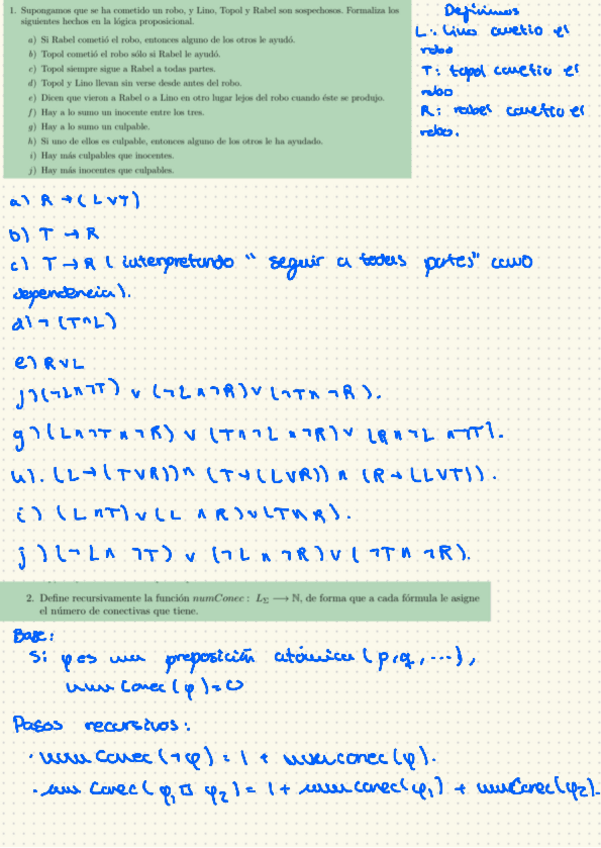 1. Supongamos que se ha cometido un robo, y Lino, Topol y Rabel son sospechosos. Formaliza los
siguientes hechos en la lógica proposicional.
a) Si Rabel cometió el robo, entonces alguno de los otros le ayudó.
b) Topol cometió el robo sólo si Rabel le ayudó.
c) Topol siempre sigue a Rabel a todas partes.
d) Topol y Lino llevan sin verse desde antes del robo.
e) Dicen que vieron a Rabel o a Lino en otro lugar lejos del robo cuando éste se produjo.
f) Hay a lo sumo un inocente entre los tres.
g) Hay a lo sumo un culpable.
h) Si uno de ellos es culpable, entonces alguno de los otros le ha ayudado.
i) Hay más culpables que inocentes.
j) Hay más inocentes que culpables.
Definimos
L: Lino cometio el
robo
T: topol cometio el
robo
R: rabel cometio el
robo.
a) R → (L ∨ T)
b) T → R
c) T → R ( interpretando " seguir a todas partes" como
dependencia).
d) ¬ (T ∧ L)
e) R ∨ L
j) (¬L ∧ ¬T) ∨ (¬L ∧ ¬R) ∨ (¬T ∧ ¬R).
g) (L ∧ ¬T ∧ ¬R) ∨ (T ∧ ¬L ∧ ¬R) ∨ (R ∧ ¬L ∧ ¬T).
h). (L → (T ∨ R)) ∧ (T → (L ∨ R)) ∧ (R → (L ∨ T)).
i) (L ∧ T) ∨ (L ∧ R) ∨ (T ∧ R).
j) (¬L ∧ ¬T) ∨ (¬L ∧ ¬R) ∨ (¬T ∧ ¬R).
2. Define recursivamente la función numConec : L_Σ ⟶ ℕ, de forma que a cada fórmula le asigne
el número de conectivas que tiene.
Base:
Si φ es una preposición atómica (p, q, ...),
num Conec (φ) = 0
Pasos recursivos:
· num Conec (¬φ) = 1 + numconec (φ).
· num Conec (φ₁ □ φ₂) = 1 + numconec(φ₁) + numConec(φ₂).